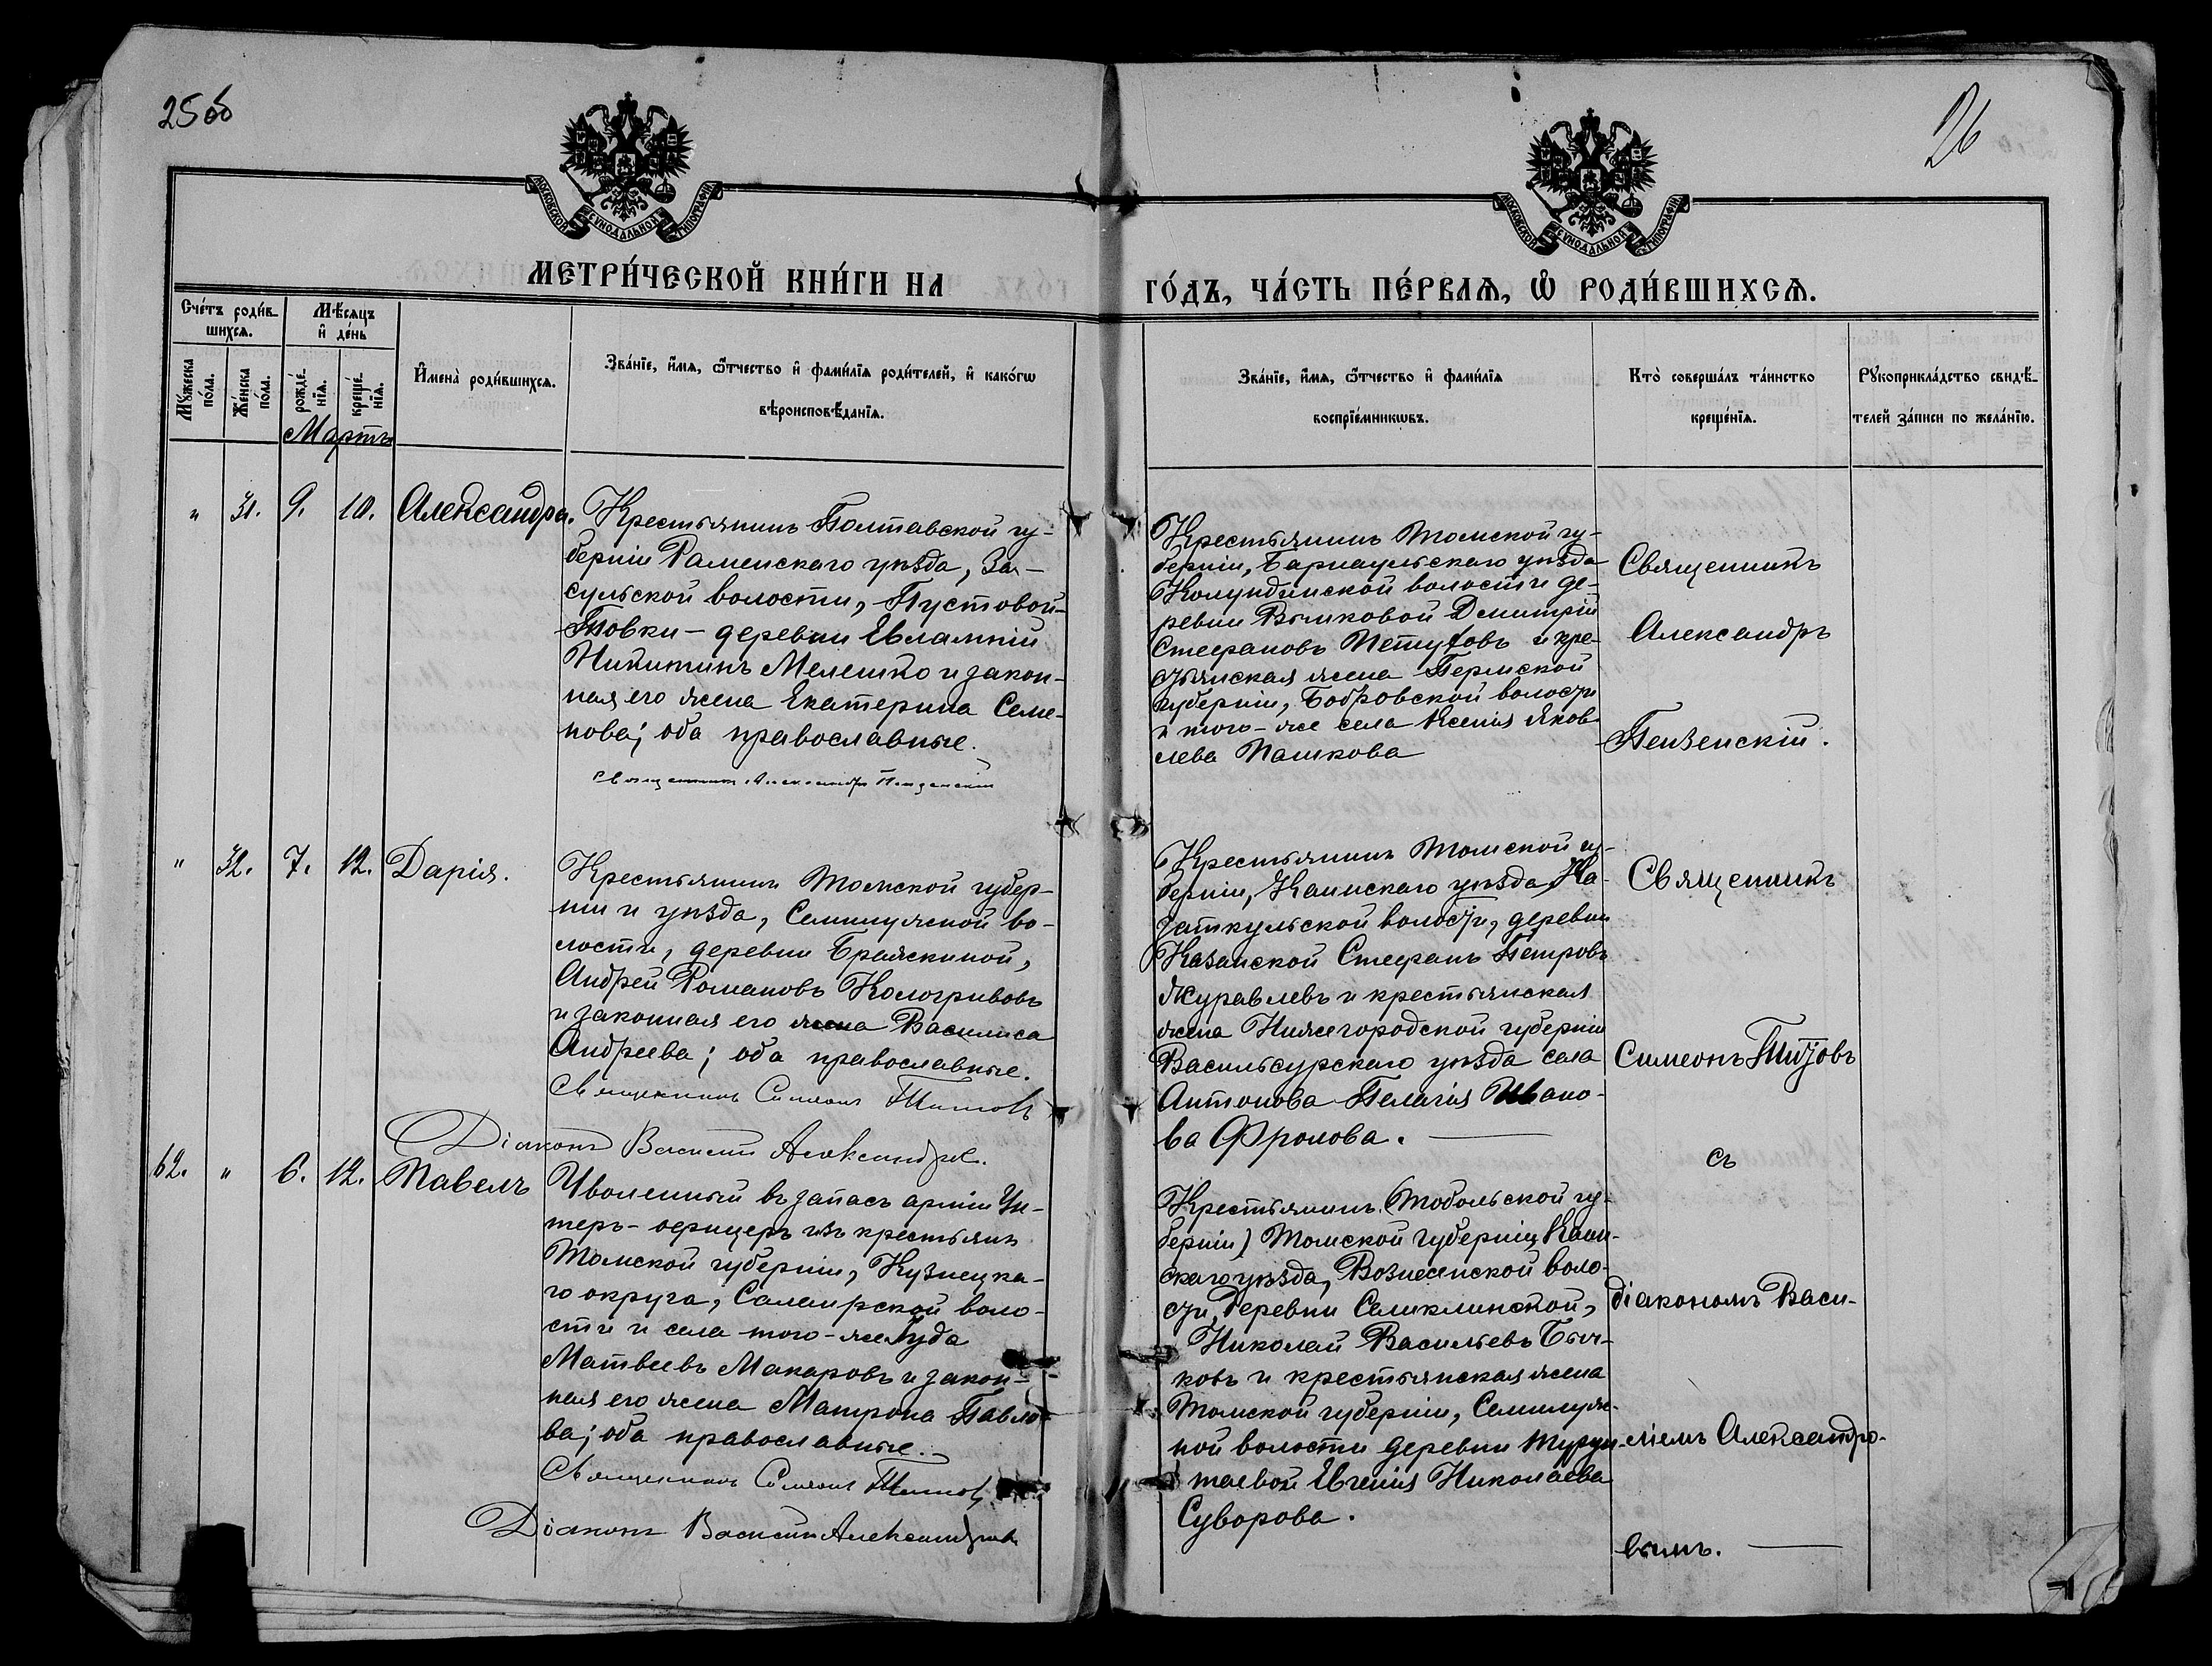 25об
26
МОСКОВСКОЙ СѴНОДАЛЬНОЙ ТИПОГРАФІИ
МОСКОВСКОЙ СѴНОДАЛЬНОЙ ТИПОГРАФІИ
МЕТРИ́ЧЕСКОЙ КНИ́ГИ НА
ГО́ДЪ, ЧА́СТЬ ПЕ́РВАѦ, Ѡ҆ РОДИ́ВШИХСѦ.
Сче́тъ роди́в-
шихсѧ.
Мѣ́сѧцъ
и҆ де́нь
Мꙋ́жеска
по́ла.
Же́нска
по́ла.
рожде́-
нїѧ.
креще́-
нїѧ.
И҆мена̀ роди́вшихсѧ.
Зва́нїе, и҆́мѧ, ѻ҆́тчество и҆ фами́лїѧ роди́телей, и҆ како́гѡ
вѣроисповѣ́данїѧ.
Зва́нїе, и҆́мѧ, ѻ҆́тчество и҆ фами́лїѧ
воспрїе́мникѡвъ.
Кто̀ соверша́лъ та́инство
креще́нїѧ.
Рꙋкоприкла́дство свидѣ́-
телей за́писи по жела́нїю.
Мартъ
" 31. 9. 10. Александра.
Крестьянинъ Полтавской гу-
берніи Раменскаго уѣзда, За-
сульской волости, Пустовой-
товки - деревни Евлампій
Никитинъ Мелешко и закон-
ная его жена Екатерина Семе-
нова; оба православные.
Священникъ Александръ Пензенскій
Крестьянинъ Томской гу-
берніи, Барнаульскаго уѣзда
Кулундинской волости де-
ревни Вылковой Дмитрій
Стефановъ Петуховъ и кре-
стьянская жена Пермской
губерніи, Бобровской волости
и того-же села Ксенія Яков-
лева Пашкова
Священникъ
Александръ
Пензенскій.
" 32. 7. 12. Дарія.
Крестьянинъ Томской губер-
ніи и уѣзда, Семилужной во-
лости, деревни Бражкиной,
Андрей Романовъ Кологривовъ
и законная его жена Василиса
Андреева; оба православные.
Священникъ Симеонъ Титовъ
Діаконъ Василій Александровъ.
Крестьянинъ Томской гу-
берніи, Каинскаго уѣзда, Ка-
заткульской волости, деревни
Казанской Стефанъ Петровъ
Журавлевъ и крестьянская
жена Нижегородской губерніи
Васильсурскаго уѣзда села
Антонова Пелагія Ивано-
ва Фролова.
Священникъ
Симеонъ Титовъ
съ
діакономъ Васи-
ліемъ Александро-
вымъ.
62. " 6. 12. Павелъ
Уволенный въ запасъ арміи Ун-
теръ-офицеръ изъ крестьянъ
Томской губерніи, Кузнецка-
го округа, Салаирской воло-
сти и села того-же Іуда
Матвеевъ Макаровъ и закон-
ная его жена Матрона Павло-
ва; оба православные.
Священникъ Симеонъ Титовъ
Діаконъ Василій Александровъ
Крестьянинъ (Тобольской гу-
берніи) Томской губерніи, Каин-
скаго уѣзда, Вознесенской воло-
сти, деревни Сеиклинской,
Николай Васильевъ Быч-
ковъ и крестьянская жена
Томской губерніи, Семилуж-
ной волости деревни Турун-
таевой Евгенія Николаева
Суворова.